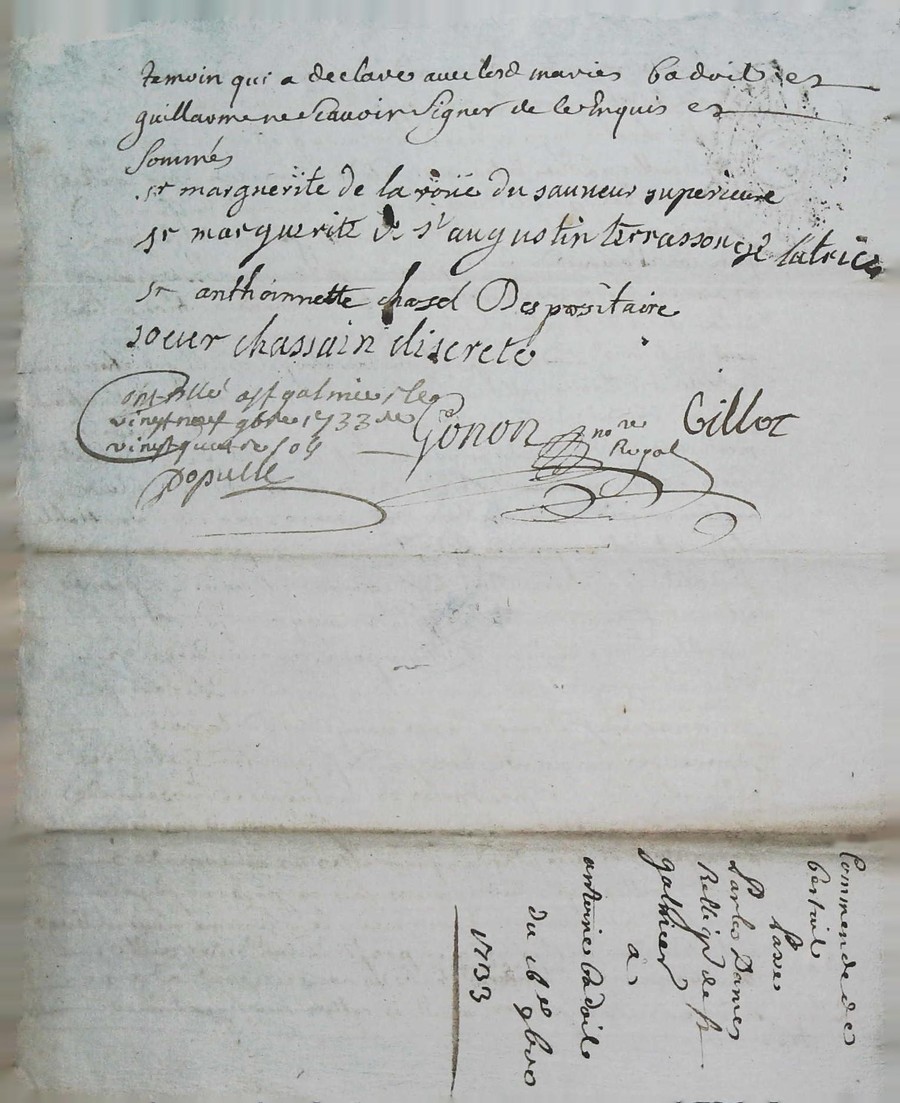 temoin qui a declare avec lesd maries badoil et
guillaume ne scavoir signer de ce enquis et
sommés
sr marguerite de la roüe du sauueur superieure
sr marguerite de st augustin terrasson
sr anthoinnette chasel Despositaire
soeur chassain discrete
Controllé a st galmier le
vingt neuf gbre 1733
vingt quatre sols
Populle
Gonon nore
Royal
Gillot
Commende de
bestail
Passe
Par les Dames
Relligs de st
galmier
a
antoine badoil
du 16e gbre
1733